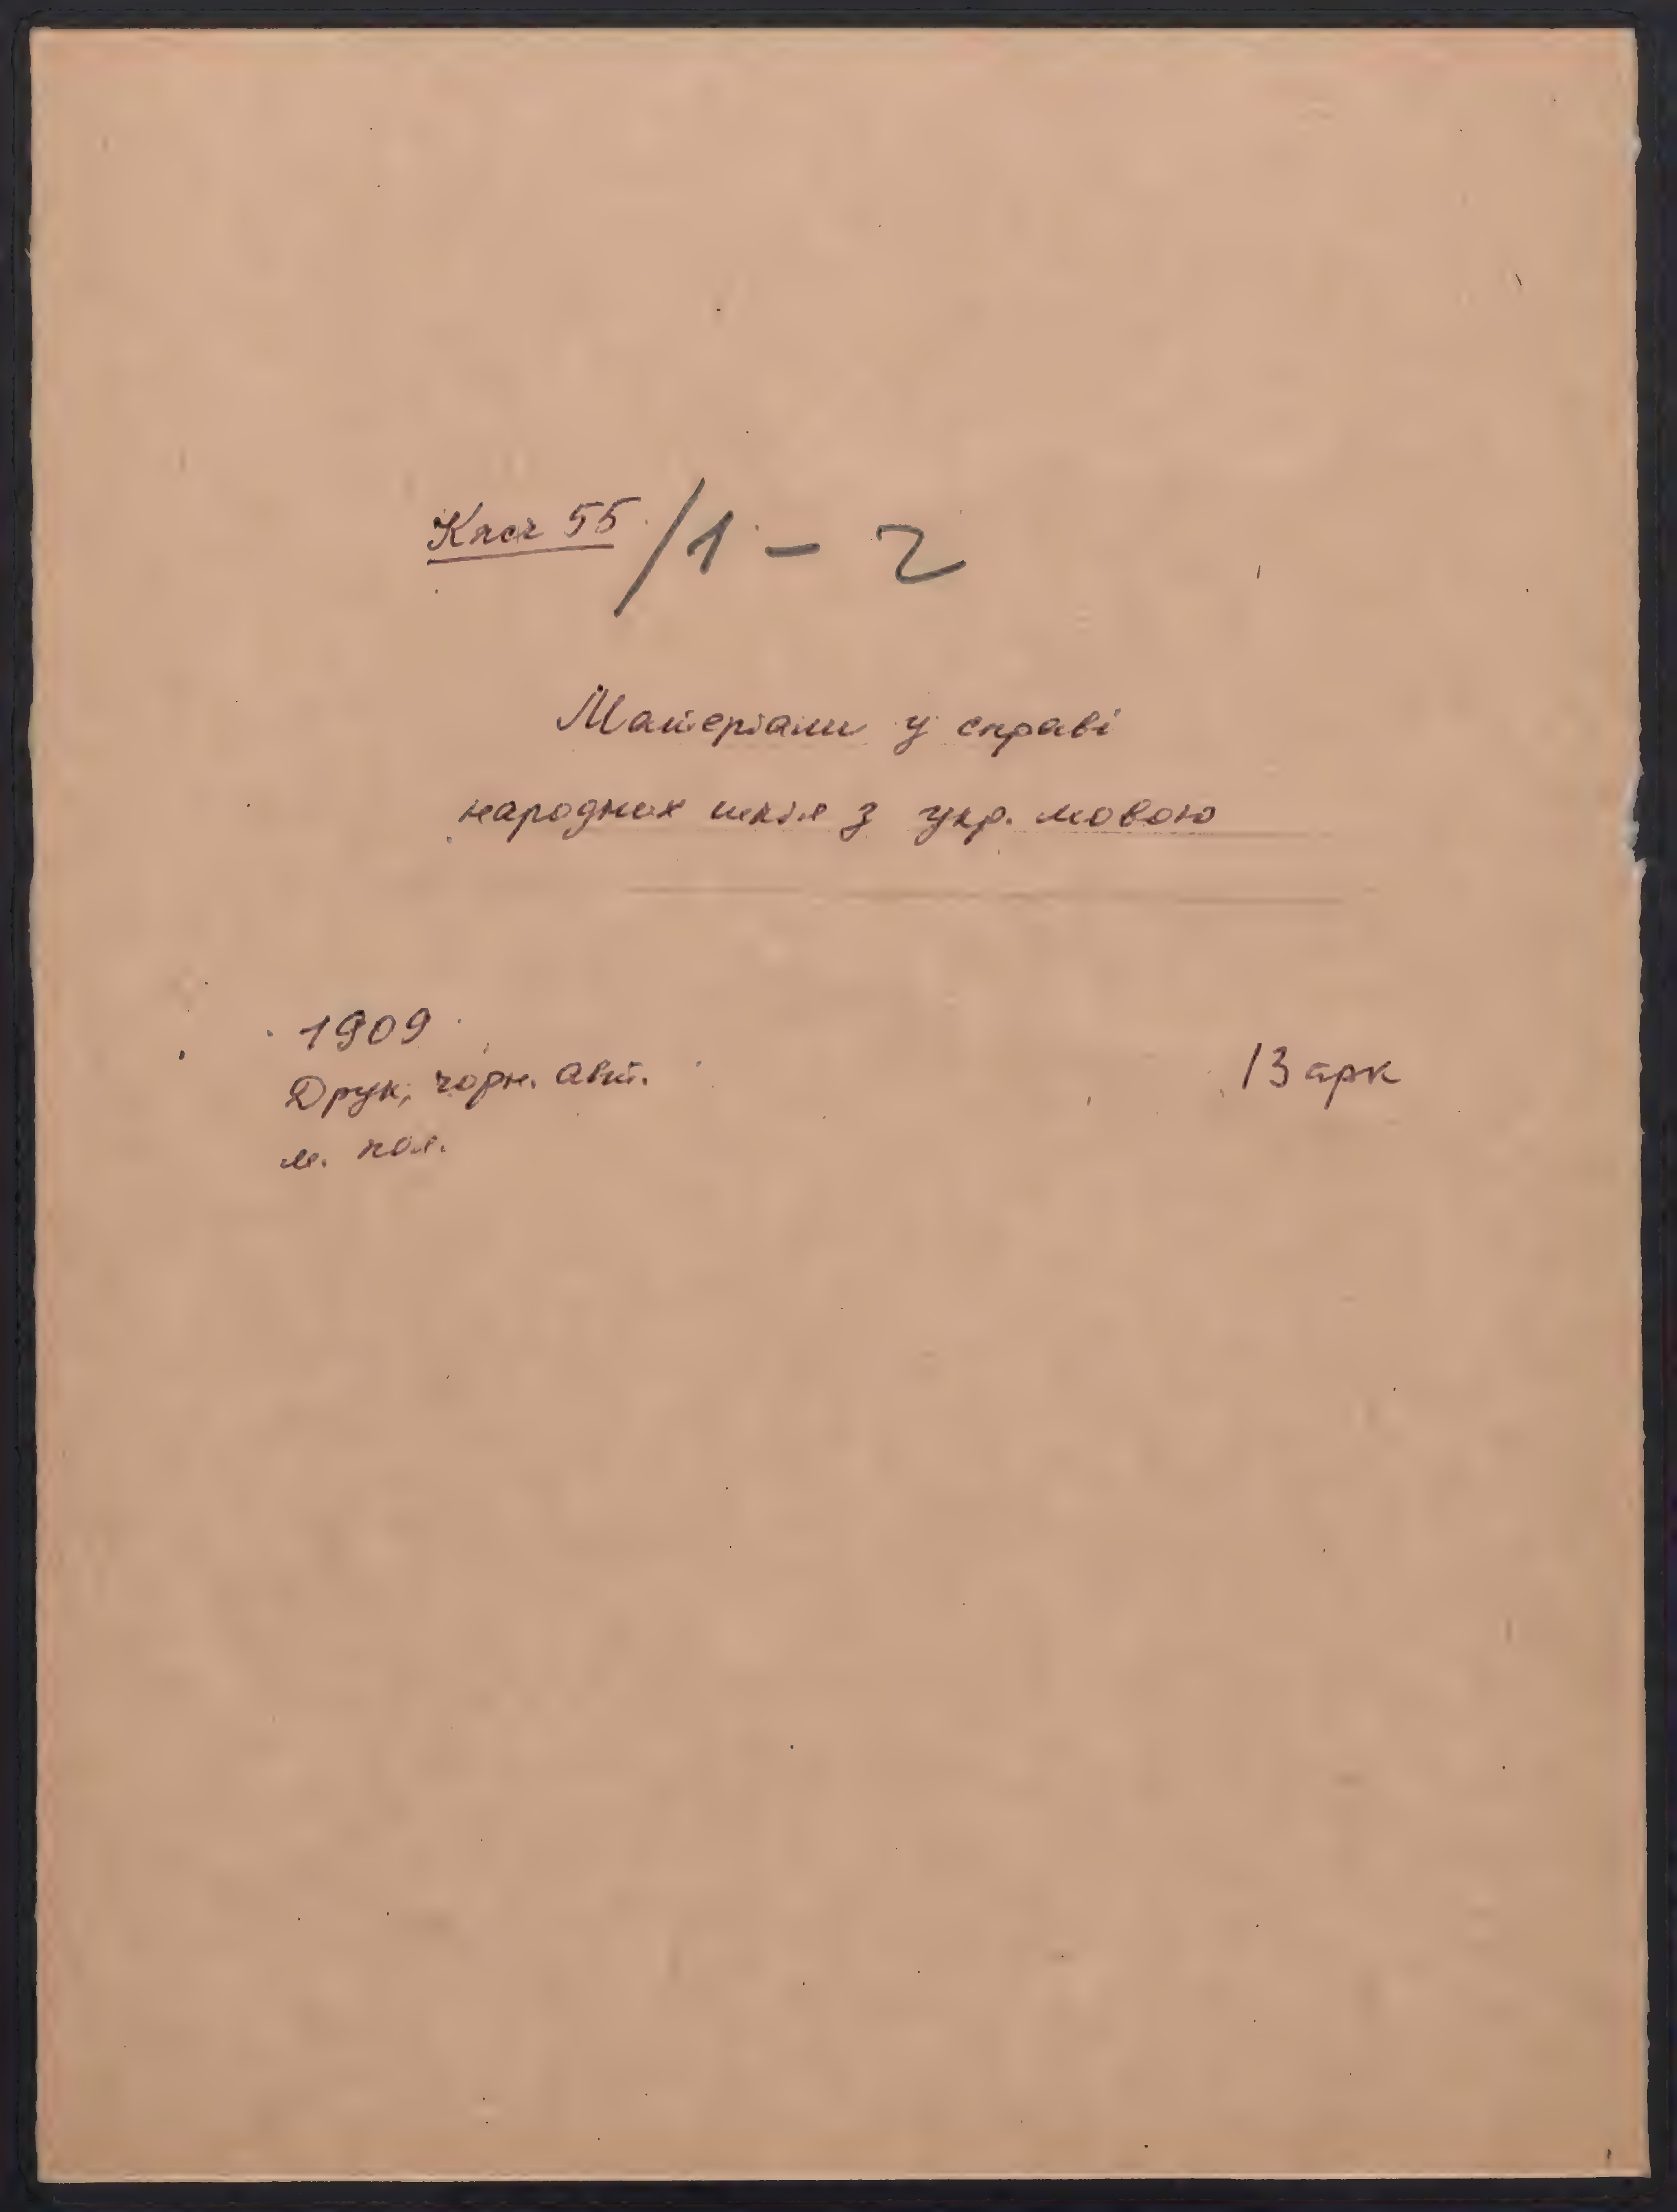 Кясч 55/1 - 2
Матеріали у справі
народних шкіл з укр. мовою
1909
Друк, чорн. авт.
13 арк
м. пол.